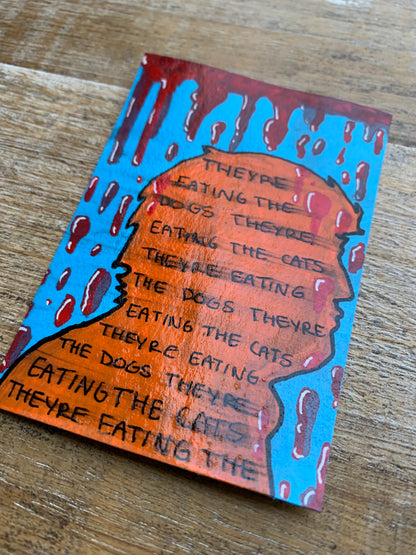 THEYRE
EATING THE
DOGS THEYRE
EATING THE CATS
THEYRE EATING
THE DOGS THEYRE
EATING THE CATS
THEYRE EATING
THE DOGS THEYRE
EATING THE CATS
THEYRE EATING THE